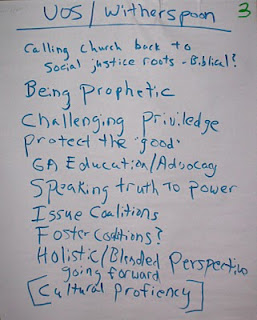 VOS/Witherspoon
3
Calling Church back to
social justice roots - Biblical?
Being Prophetic
Challenging Priviledge
protect the "good"
GA Education/Advocacy
Speaking truth to power
Issue Coalitions
Foster Coalitions?
Holistic/Blended Perspective
going forward
[Cultural Profiency]